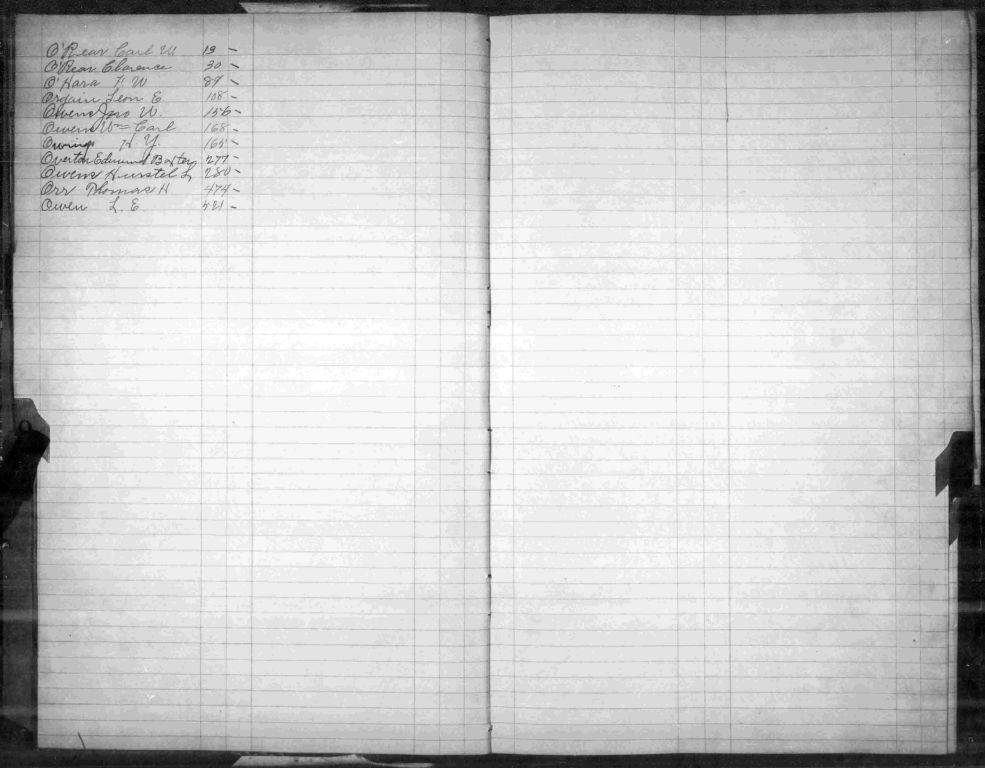 O'Rear Carl W 19 -
O'Rear Clarence 30 -
O'Hara F. W 87 -
Orgain Leon E 108 -
Owens Jno W. 156 -
Owen Wm Carl 168 -
Owings H Y. 165 -
Overton Edmund Baxter 277 -
Owens Hurstel L 280 -
Orr Thomas H 474 -
Owen L. E 521 -